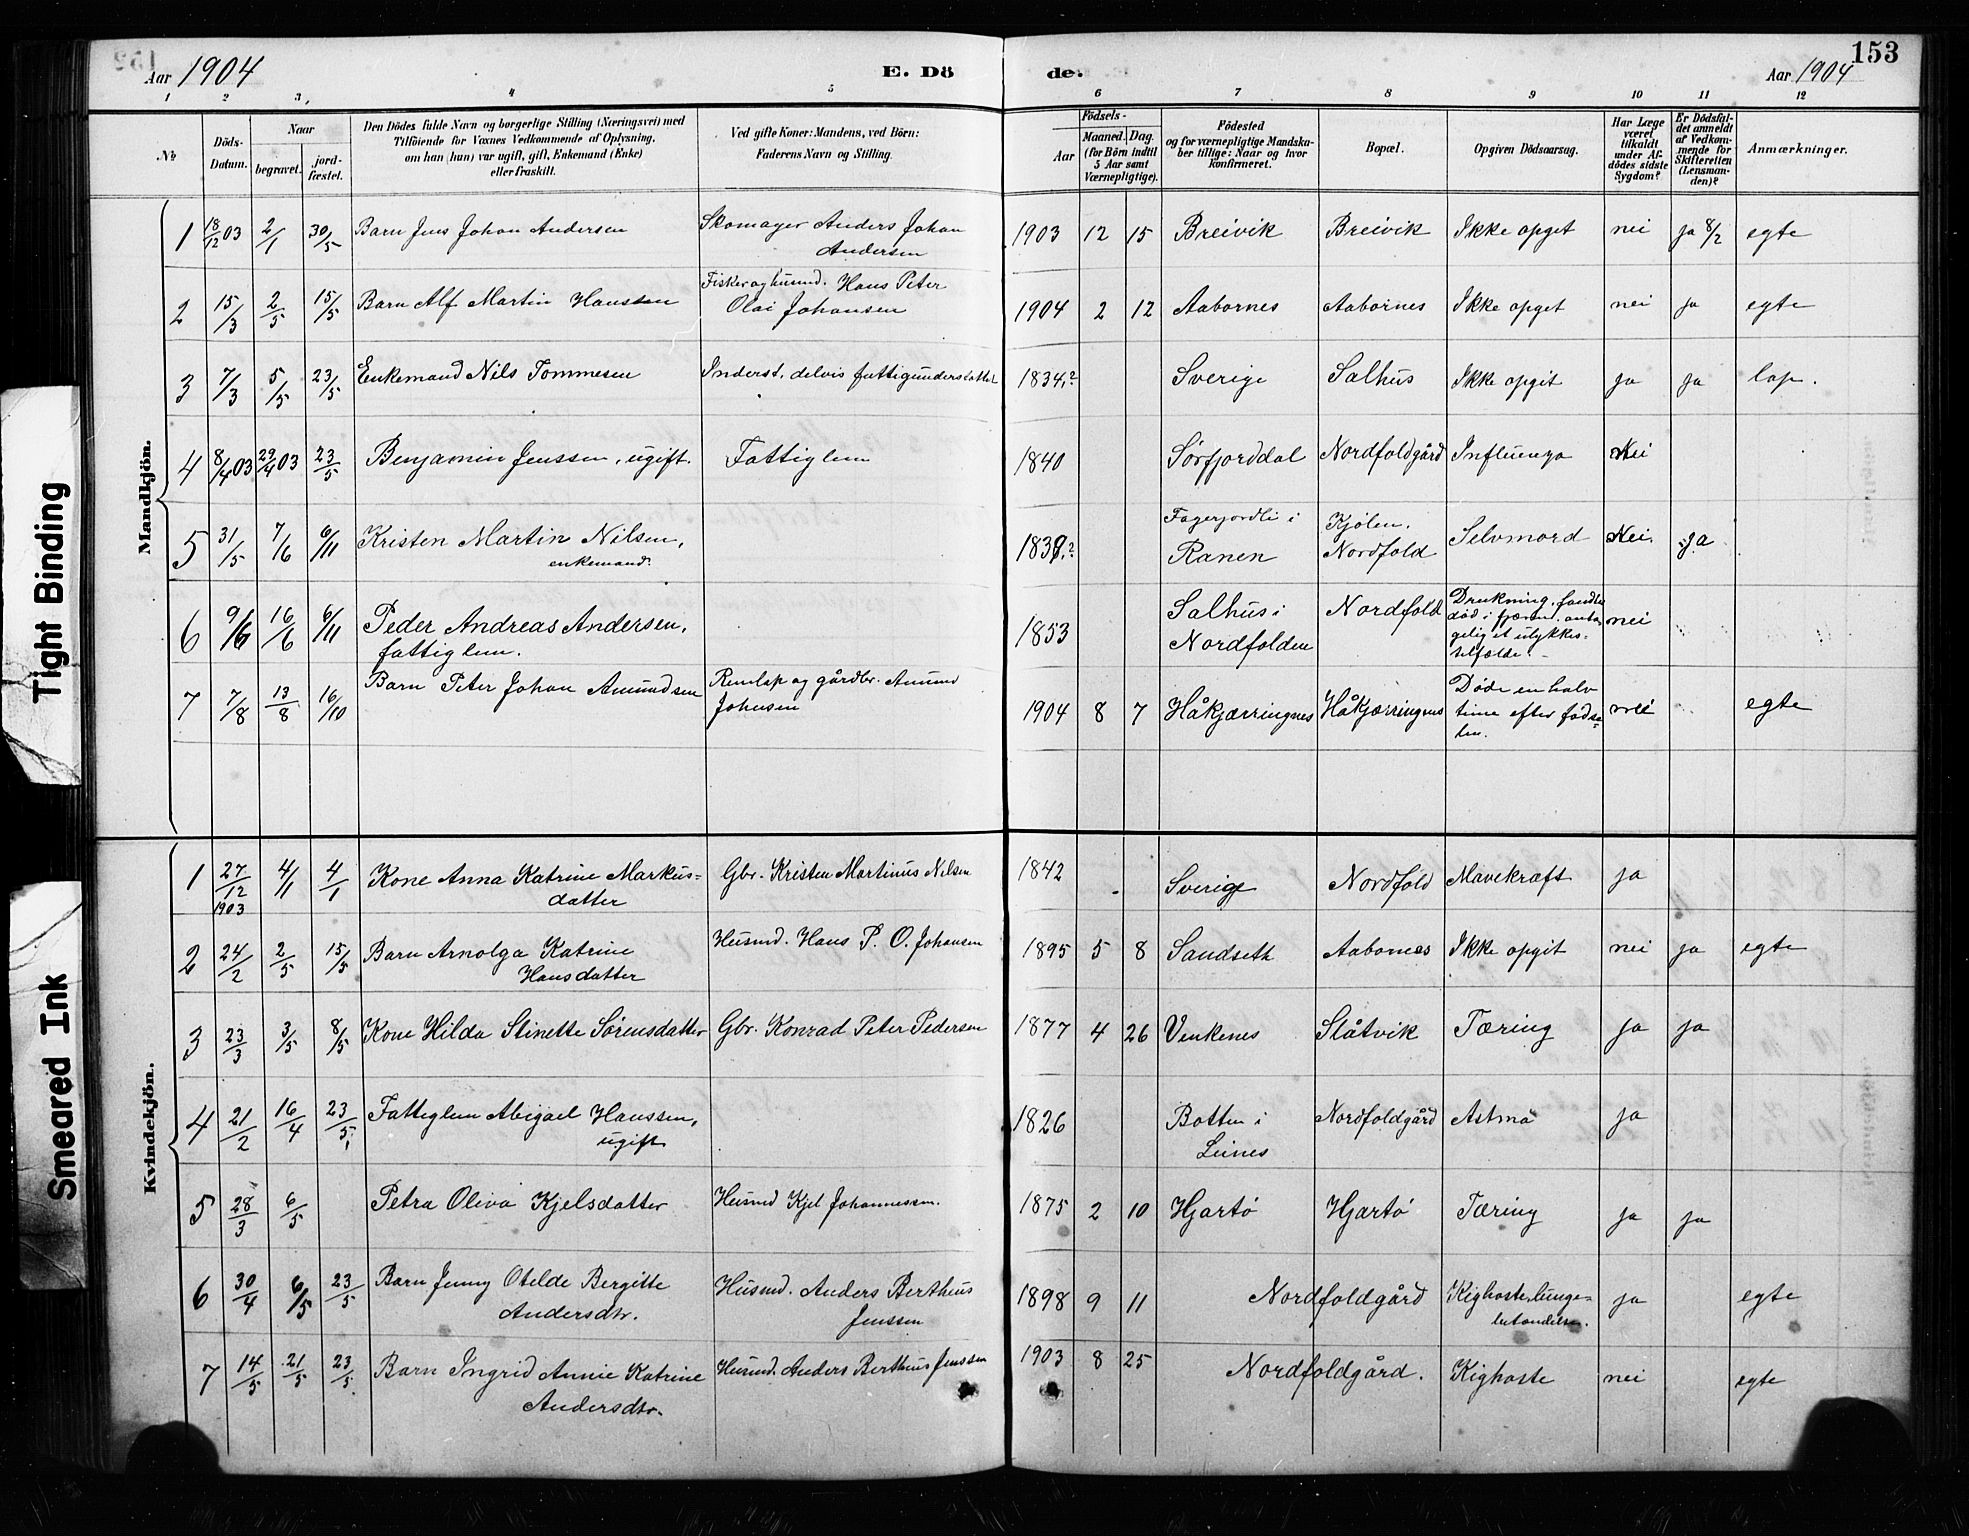 Aar 1904
E. Dö
de.
153
Aar 1904
1 2 3 4 5 6 7 8 9 10 11 12
No
Döds-
Datum.
Naar
begravet.
jord-
fæstet.
Den Dödes fulde Navn og borgerlige Stilling (Næringsvei) med
Tilföiende for Voxnes Vedkommende af Oplysning,
om han (hun) var ugift, gift, Enkemand (Enke)
eller fraskilt.
Ved gifte Koner: Mandens, ved Börn:
Faderens Navn og Stilling.
Födsels-
Aar
Maaned.
Dag.
(for Börn indtil
5 Aar samt
Værnepligtige).
Födested
og for værnepligtige Mandska-
ber tillige: Naar og hvor
konfirmeret.
Bopæl.
Opgiven Dödsaarsag.
Har Læge
været
tilkaldt
under Af-
dödes sidste
Sygdom?
Er Dödsfal-
det anmeldt
af Vedkom-
mende for
Skifteretten
(Lensman-
den)?
Anmærkninger.
Mandkjön.
1 18/12 03 2/1 30/5 Barn Jens Johan Andersen Skomager Anders Johan
Andersen
1903 12 15 Breivik Breivik Ikke opget nei ja 8/2 egte
2 15/3 2/5 15/5 Barn Alf Martin Hanssen Fisker og husmd. Hans Peter
Olai Johansen
1904 2 12 Aabornes Aabornes Ikke opget nei ja egte
3 7/3 5/5 23/5 Enkemand Nils Tommesen Inderst, delvis fattigunderstøttet
1834.? Sverige Salhus Ikke opgit ja ja lap.
4 8/4 03 29/4 03 23/5 Benjamin Jenssen, ugift. Fattiglem
1840 Sørfjorddal Nordfoldgård Influenza Nei
5 31/5 7/6 6/11 Kristen Martin Nilsen,
enkemand.
1839.? Fagerjordli i
Ranen
Kjølen,
Nordfold
Selvmord Nei. ja
6 9/6 16/6 6/11 Peder Andreas Andersen,
fattiglem.
1853 Salhus i
Nordfolden
Nordfold
Drukning, fandtes
død i fjæren, anta-
gelig et ulykkes-
tilfælde.
nei
7 7/8 13/8 16/10 Barn Peter Johan Amundsen Remlap og gårdbr. Amund
Johnsen
1904 8 7 Håkjærringnes Håkjærringnes Døde en halv
time efter fødse-
len.
nei egte
Kvindekjön.
1 27/12 1903 4/1 4/1 Kone Anna Katrine Markus-
datter
Gbr. Kristen Martinus Nilsen
1842 Sverige Nordfold Mavekræft ja
2 24/2 2/5 15/5 Barn Arnolga Katrine
Hansdatter
Husmd. Hans P. O. Johansen
1895 5 8 Sandseth Aabornes Ikke opgit nei ja egte
3 23/3 3/5 8/5 Kone Hilda Stinette Sørensdatter Gbr. Konrad Peter Pedersen
1877 4 26 Venkenes Slåtvik Tæring ja ja
4 21/2 16/4 23/5 Fattiglem Abigael Hanssen,
ugift
1826 Botten i
Leines
Nordfoldgård Astma ja
5 28/3 6/5 Petra Oliva Kjelsdatter Husmd Kjel Johannessen.
1875 2 10 Hjartø Hjartø Tæring ja ja
6 30/4 6/5 23/5 Barn Jenny Otelde Bergitte
Andersdtr.
Husmd. Anders Bertheus
Jenssen
1898 9 11 Nordfoldgård Kighoste, lunge-
betændelse.
ja egte
7 14/5 21/5 23/5 Barn Ingrid Annie Katrine
Andersdtr.
Husmd. Anders Berthus Jenssen
1903 8 25 Nordfoldgård. Kighoste nei egte
Tight Binding
Smeared Ink